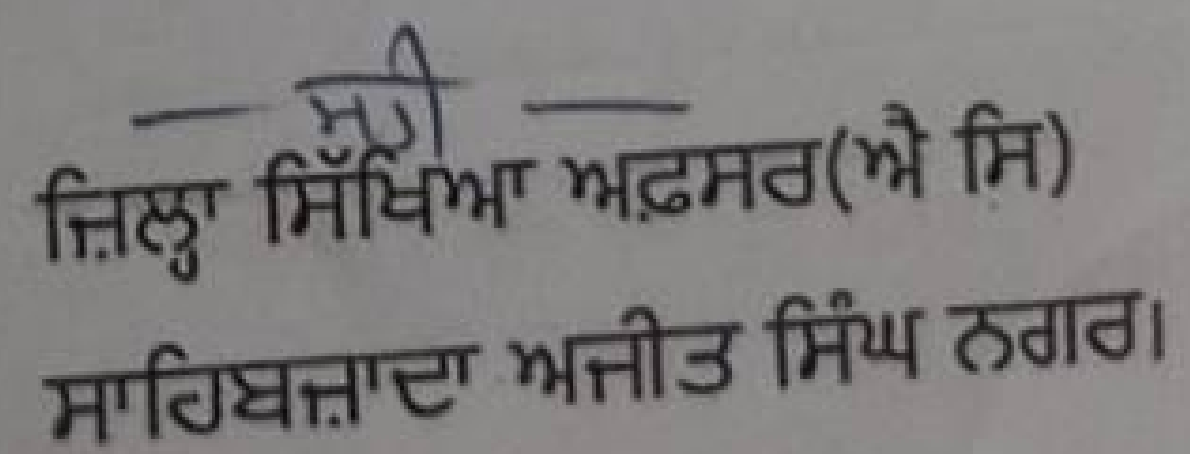 — ਸਹੀ —
ਜ਼ਿਲ੍ਹਾ ਸਿੱਖਿਆ ਅਫ਼ਸਰ(ਐ ਸਿ)
ਸਾਹਿਬਜ਼ਾਦਾ ਅਜੀਤ ਸਿੰਘ ਨਗਰ।